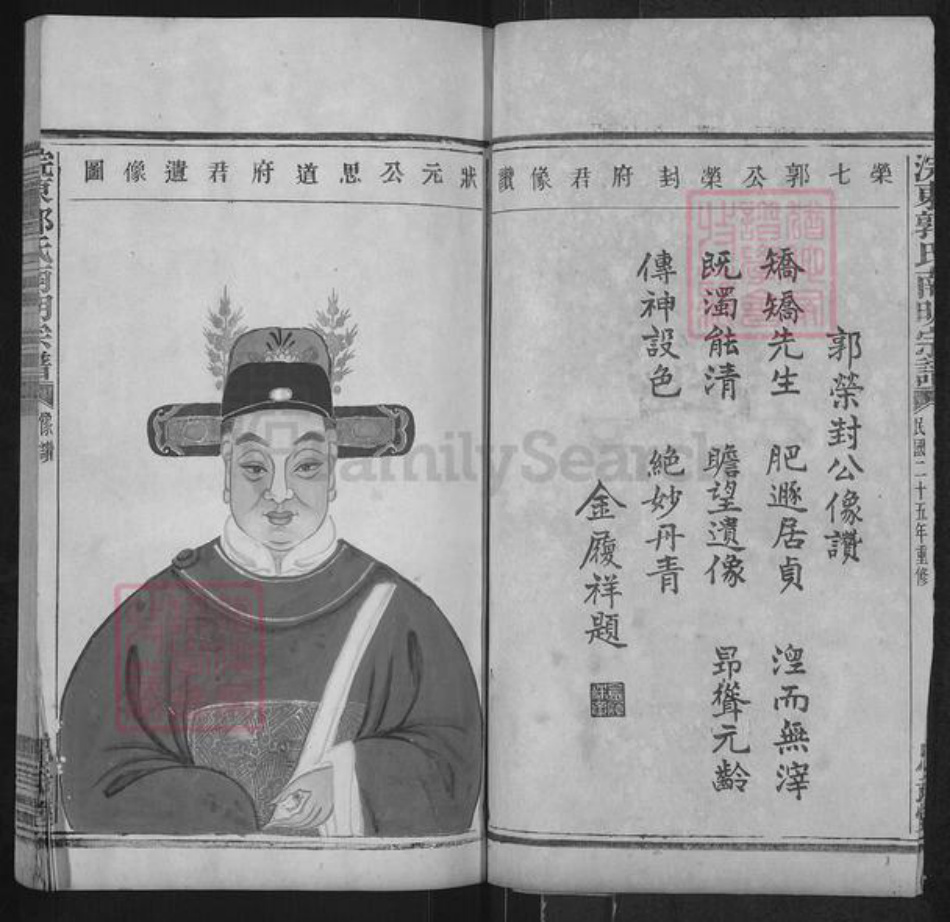 浣東郭氏南明宗譜
民國二十五年重修
榮七郭公榮封府君像讚
郭榮封公像讚
矯矯先生 肥遯居貞 湼而無滓
既濁能清 瞻望遺像 昂聳元齡
傳神設色 絶妙丹青
金履祥題
狀元公思道府君遺像圖
像讚
FamilySearch